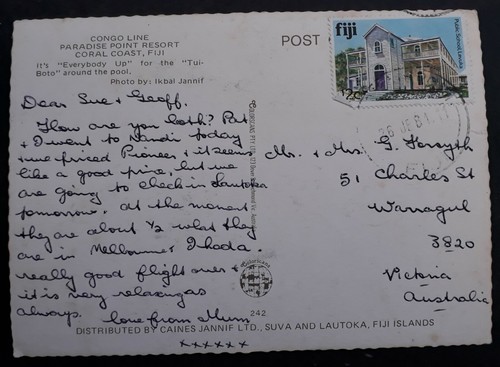 CONGO LINE
PARADISE POINT RESORT
CORAL COAST, FIJI
It's "Everybody Up" for the "Tui-
Boto" around the pool.
Photo by: Ikbal Jannif
POST
Dear Sue & Geoff.
How are you both? Pat
& I went to Nandi today
& we priced Pioneer & it seems
like a good price, but we
are going to check in Lautoka
tomorrow. At the moment
they are about ½ what they
are in Melbourne. I had a
really good flight over &
it is very relaxing as
always. love from Mum
xxxxxx
fiji
Public School Levuka
12c
26 JE 81
Mr. & Mrs. G. Forsyth
51 Charles St
Warragul
3820
Victoria
Australia
242
DISTRIBUTED BY CAINES JANNIF LTD., SUVA AND LAUTOKA, FIJI ISLANDS